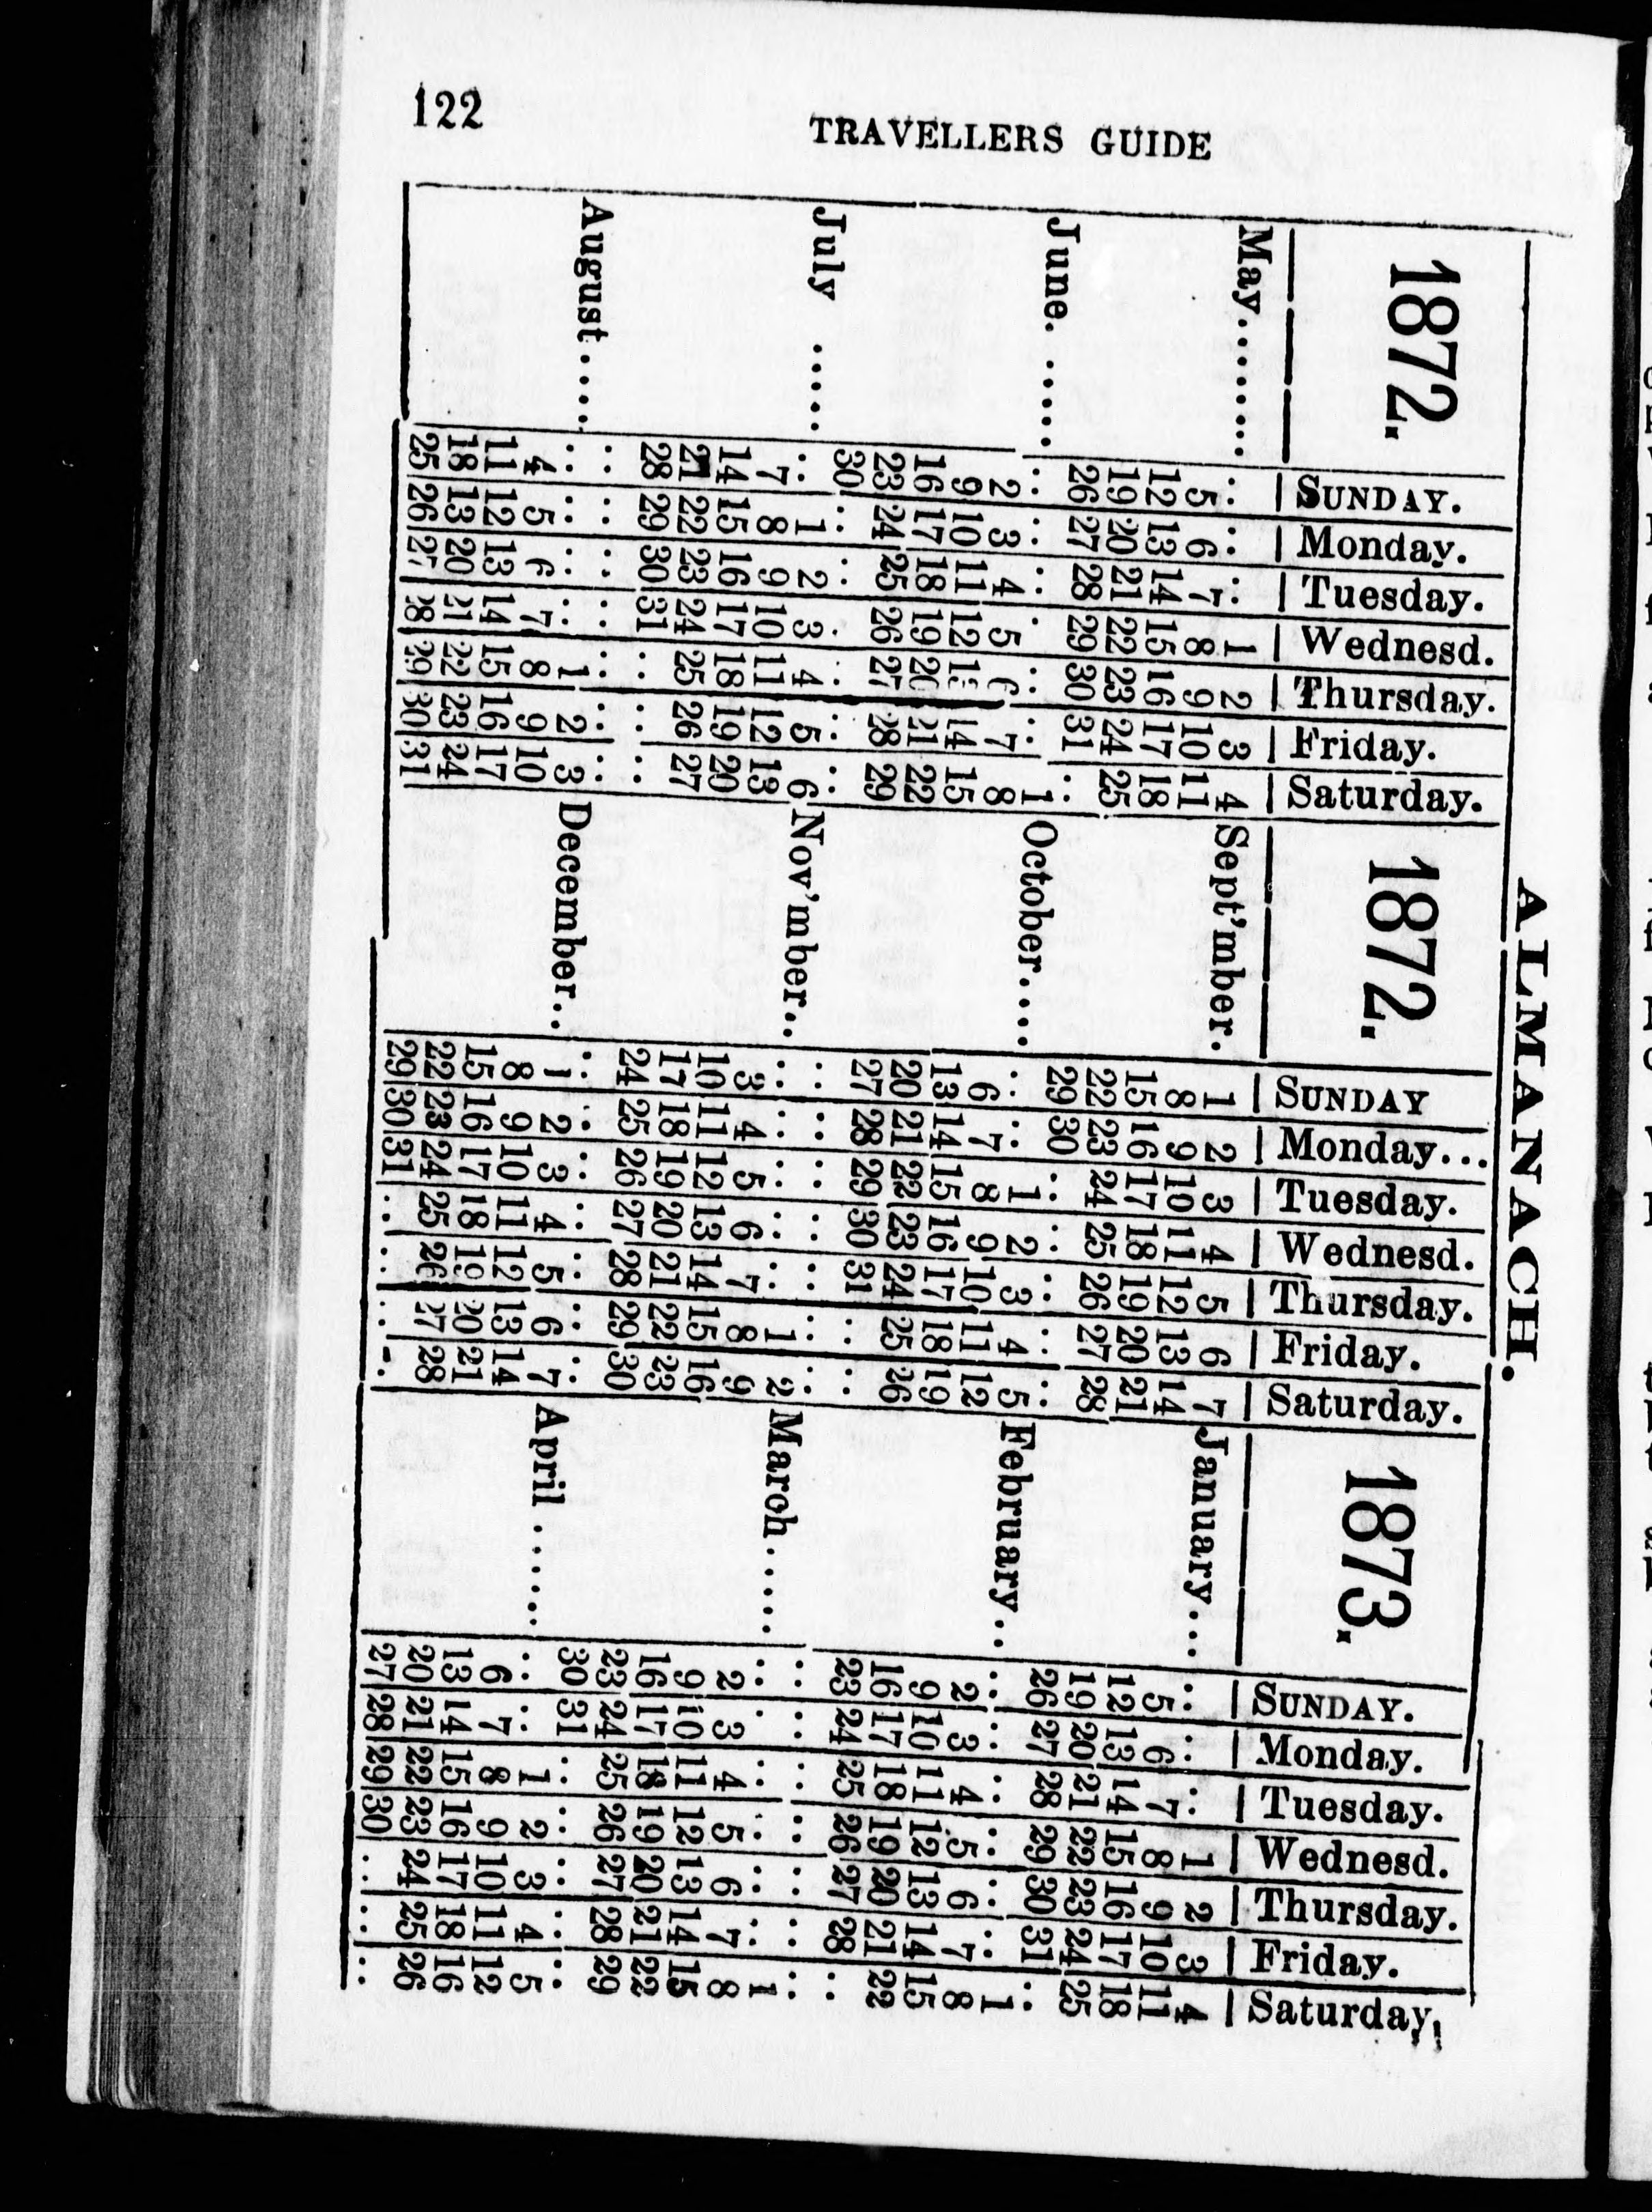 122
TRAVELLERS GUIDE
ALMANACH.
1872. SUNDAY. Monday. Tuesday. Wednesd. Thursday. Friday. Saturday.
May........ .. .. .. 1 2 3 4
5 6 7 8 9 10 11
12 13 14 15 16 17 18
19 20 21 22 23 24 25
26 27 28 29 30 31 ..
June....... .. .. .. .. .. .. 1
2 3 4 5 6 7 8
9 10 11 12 13 14 15
16 17 18 19 20 21 22
23 24 25 26 27 28 29
30 .. .. .. .. .. ..
July ...... .. 1 2 3 4 5 6
7 8 9 10 11 12 13
14 15 16 17 18 19 20
21 22 23 24 25 26 27
28 29 30 31 .. .. ..
August..... .. .. .. .. 1 2 3
4 5 6 7 8 9 10
11 12 13 14 15 16 17
18 13 20 21 22 23 24
25 26 27 28 29 30 31
1872. SUNDAY Monday... Tuesday. Wednesd. Thursday. Friday. Saturday.
Sept'mber. 1 2 3 4 5 6 7
8 9 10 11 12 13 14
15 16 17 18 19 20 21
22 23 24 25 26 27 28
29 30 .. .. .. .. ..
October.... .. .. 1 2 3 4 5
6 7 8 9 10 11 12
13 14 15 16 17 18 19
20 21 22 23 24 25 26
27 28 29 30 31 .. ..
Nov'mber.. .. .. .. .. .. 1 2
3 4 5 6 7 8 9
10 11 12 13 14 15 16
17 18 19 20 21 22 23
24 25 26 27 28 29 30
December.. 1 2 3 4 5 6 7
8 9 10 11 12 13 14
15 16 17 18 19 20 21
22 23 24 25 26 27 28
29 30 31 .. .. .. ..
1873. SUNDAY. Monday. Tuesday. Wednesd. Thursday. Friday. Saturday,
January.... .. .. .. 1 2 3 4
5 6 7 8 9 10 11
12 13 14 15 16 17 18
19 20 21 22 23 24 25
26 27 28 29 30 31 ..
February... .. .. .. .. .. .. 1
2 3 4 5 6 7 8
9 10 11 12 13 14 15
16 17 18 19 20 21 22
23 24 25 26 27 28 ..
March...... .. .. .. .. .. .. 1
2 3 4 5 6 7 8
9 10 11 12 13 14 15
16 17 18 19 20 21 22
23 24 25 26 27 28 29
30 31 .. .. .. .. ..
April ...... .. .. 1 2 3 4 5
6 7 8 9 10 11 12
13 14 15 16 17 18 16
20 21 22 23 24 25 26
27 28 29 30 .. .. ..